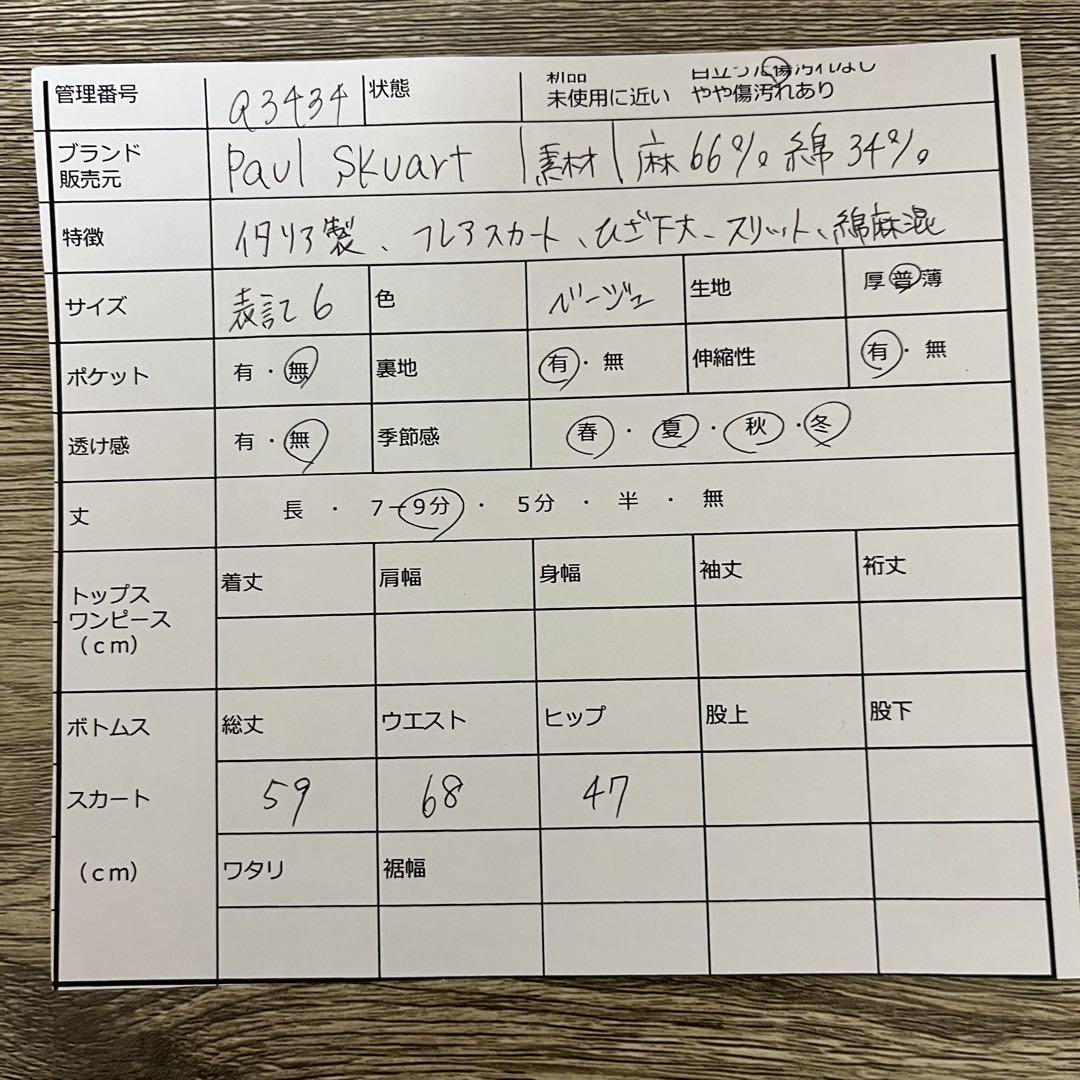 新品 目立つた傷汚れなし
管理番号 a3434 状態 未使用に近い やや傷汚れあり
ブランド
販売元 Paul Skuart 素材 麻66% 綿34%
特徴 イタリア製、フレアスカート、ひざ下丈、スリット、綿麻混
サイズ 表記6 色 ベージュ 生地 厚普薄
ポケット 有・無 裏地 有・無 伸縮性 有・無
透け感 有・無 季節感 春・夏・秋・冬
丈 長・7ー9分・5分・半・無
トップス
ワンピース
(cm) 着丈 肩幅 身幅 袖丈 裄丈
ボトムス 総丈 ウエスト ヒップ 股上 股下
スカート 59 68 47
(cm) ワタリ 裾幅